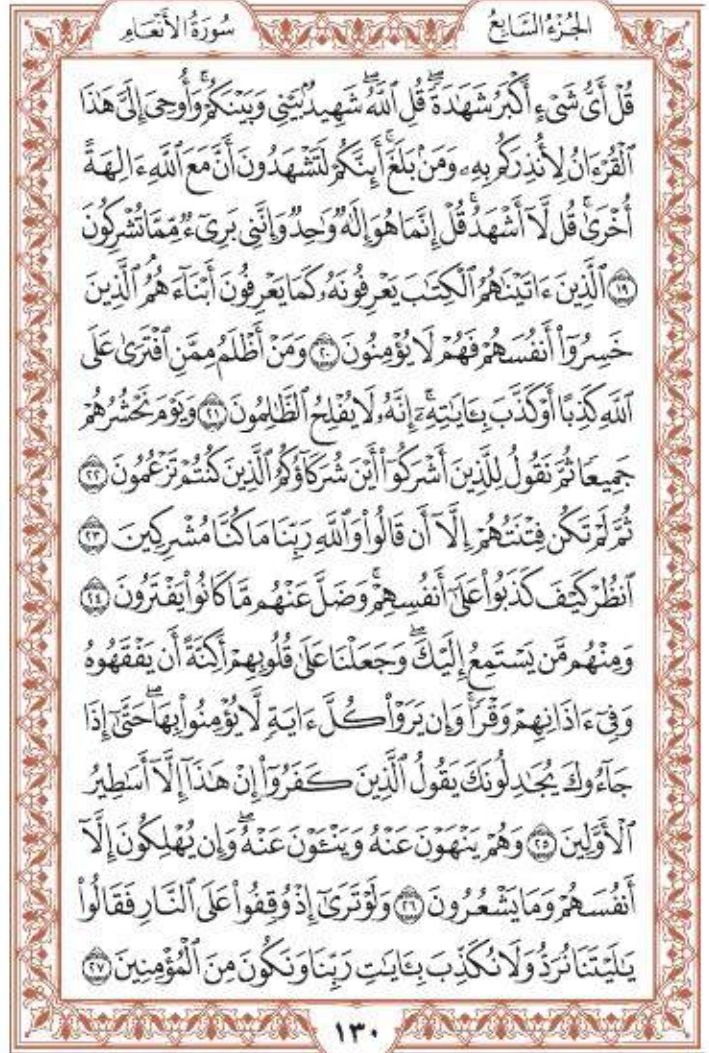 الجُزْءُ السَّابِعُ
سُورَةُ الأَنْعَامِ
قُلْ أَىُّ شَىْءٍ أَكْبَرُ شَهَٰدَةً ۖ قُلِ ٱللَّهُ ۖ شَهِيدٌۢ بَيْنِى وَبَيْنَكُمْ ۚ وَأُوحِىَ إِلَىَّ هَٰذَا
ٱلْقُرْءَانُ لِأُنذِرَكُم بِهِۦ وَمَنۢ بَلَغَ ۚ أَئِنَّكُمْ لَتَشْهَدُونَ أَنَّ مَعَ ٱللَّهِ ءَالِهَةً
أُخْرَىٰ ۚ قُل لَّآ أَشْهَدُ ۚ قُلْ إِنَّمَا هُوَ إِلَٰهٌ وَٰحِدٌ وَإِنَّنِى بَرِىٓءٌ مِّمَّا تُشْرِكُونَ
١٩ ٱلَّذِينَ ءَاتَيْنَٰهُمُ ٱلْكِتَٰبَ يَعْرِفُونَهُۥ كَمَا يَعْرِفُونَ أَبْنَآءَهُمُ ۘ ٱلَّذِينَ
خَسِرُوٓا۟ أَنفُسَهُمْ فَهُمْ لَا يُؤْمِنُونَ ٢٠ وَمَنْ أَظْلَمُ مِمَّنِ ٱفْتَرَىٰ عَلَى
ٱللَّهِ كَذِبًا أَوْ كَذَّبَ بِـَٔايَٰتِهِۦٓ ۗ إِنَّهُۥ لَا يُفْلِحُ ٱلظَّٰلِمُونَ ٢١ وَيَوْمَ نَحْشُرُهُمْ
جَمِيعًا ثُمَّ نَقُولُ لِلَّذِينَ أَشْرَكُوٓا۟ أَيْنَ شُرَكَآؤُكُمُ ٱلَّذِينَ كُنتُمْ تَزْعُمُونَ ٢٢
ثُمَّ لَمْ تَكُن فِتْنَتُهُمْ إِلَّآ أَن قَالُوا۟ وَٱللَّهِ رَبِّنَا مَا كُنَّا مُشْرِكِينَ ٢٣
ٱنظُرْ كَيْفَ كَذَبُوا۟ عَلَىٰٓ أَنفُسِهِمْ ۚ وَضَلَّ عَنْهُم مَّا كَانُوا۟ يَفْتَرُونَ ٢٤
وَمِنْهُم مَّن يَسْتَمِعُ إِلَيْكَ ۖ وَجَعَلْنَا عَلَىٰ قُلُوبِهِمْ أَكِنَّةً أَن يَفْقَهُوهُ
وَفِىٓ ءَاذَانِهِمْ وَقْرًا ۚ وَإِن يَرَوْا۟ كُلَّ ءَايَةٍ لَّا يُؤْمِنُوا۟ بِهَا ۚ حَتَّىٰٓ إِذَا
جَآءُوكَ يُجَٰدِلُونَكَ يَقُولُ ٱلَّذِينَ كَفَرُوٓا۟ إِنْ هَٰذَآ إِلَّآ أَسَٰطِيرُ
ٱلْأَوَّلِينَ ٢٥ وَهُمْ يَنْهَوْنَ عَنْهُ وَيَنْـَٔوْنَ عَنْهُ ۖ وَإِن يُهْلِكُونَ إِلَّآ
أَنفُسَهُمْ وَمَا يَشْعُرُونَ ٢٦ وَلَوْ تَرَىٰٓ إِذْ وُقِفُوا۟ عَلَى ٱلنَّارِ فَقَالُوا۟
يَٰلَيْتَنَا نُرَدُّ وَلَا نُكَذِّبَ بِـَٔايَٰتِ رَبِّنَا وَنَكُونَ مِنَ ٱلْمُؤْمِنِينَ ٢٧
١٣٠